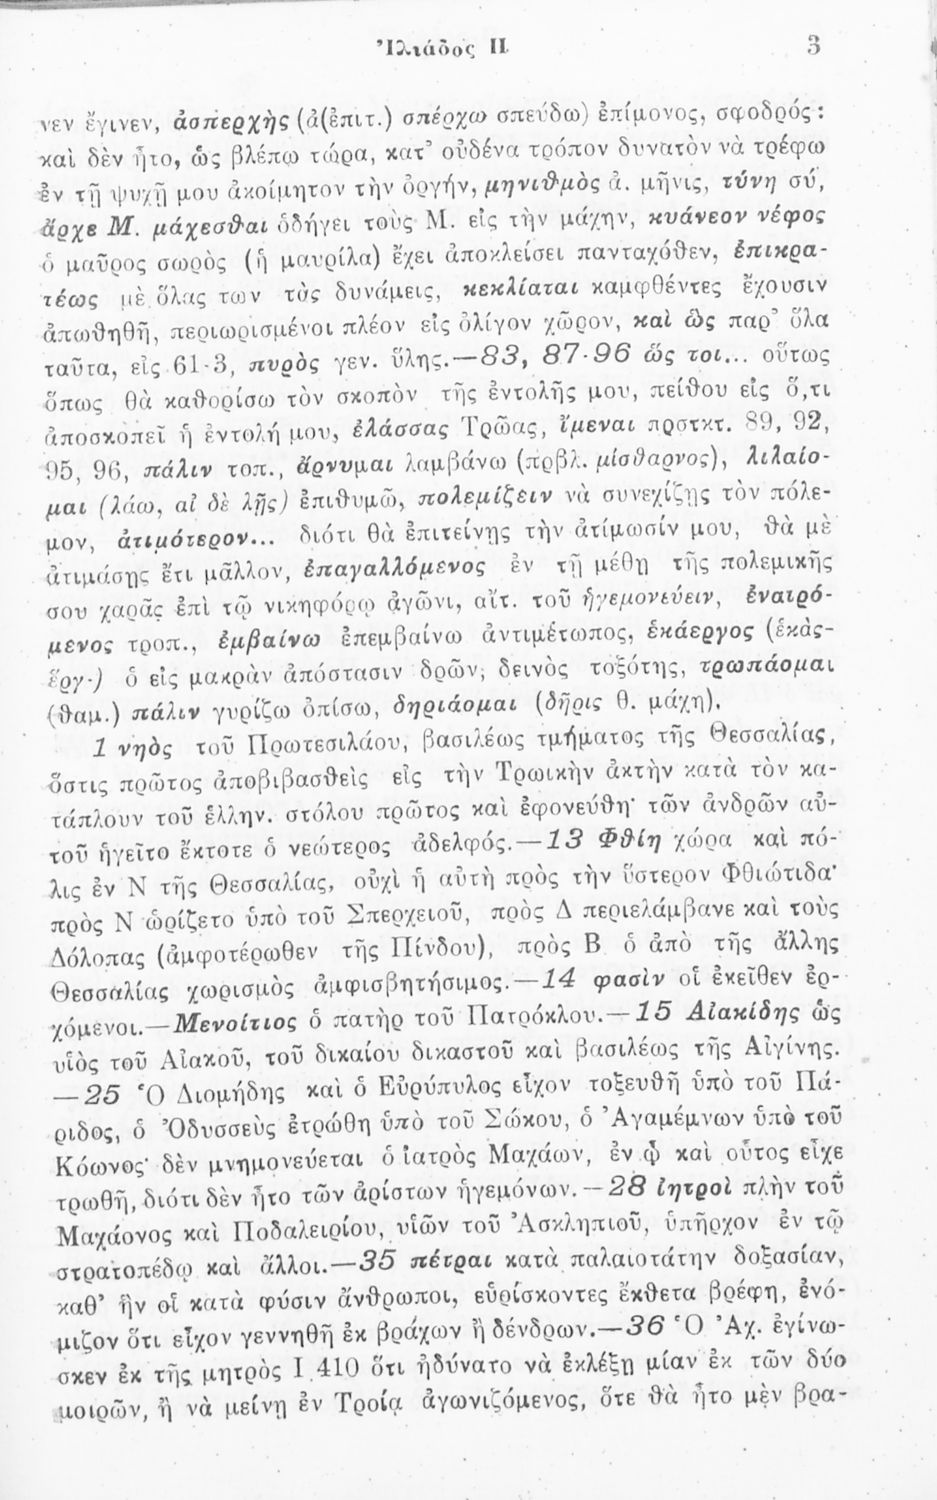 Ἰλιάδος Π 3
νεν ἔγινεν, ἀσπερχὴς (ἀ(ἐπιτ.) σπέρχω σπεύδω) ἐπίμονος, σφοδρός:
καὶ δὲν ἦτο, ὡς βλέπω τώρα, κατ’ οὐδένα τρόπον δυνατὸν νὰ τρέφω
ἐν τῇ ψυχῇ μου ἀκοίμητον τὴν ὀργήν, μηνιθμὸς ἀ. μῆνις, τύνη σύ,
ἄρχε Μ. μάχεσθαι ὁδήγει τοὺς Μ. εἰς τὴν μάχην, κυάνεον νέφος
ὁ μαῦρος σωρὸς (ἡ μαυρίλα) ἔχει ἀποκλείσει πανταχόθεν, ἐπικρα-
τέως μὲ ὅλας των τὰς δυνάμεις, κεκλίαται καμφθέντες ἔχουσιν
ἀπωθηθῆ, περιωρισμένοι πλέον εἰς ὀλίγον χῶρον, καὶ ὣς παρ’ ὅλα
ταῦτα, εἰς 61-3, πυρὸς γεν. ὕλης.—83, 87-96 ὥς τοι... οὕτως
ὅπως θὰ καθορίσω τὸν σκοπὸν τῆς ἐντολῆς μου, πείθου εἰς ὅ,τι
ἀποσκοπεῖ ἡ ἐντολή μου, ἐλάσσας Τρῶας, ἴμεναι προτκτ. 89, 92,
95, 96, πάλιν τοπ., ἄρνυμαι λαμβάνω (πρβλ. μίσθαρνος), λιλαίο-
μαι (λάω, αἰ δὲ λῇς) ἐπιθυμῶ, πολεμίζειν νὰ συνεχίζῃς τὸν πόλε-
μον, ἀτιμότερον... διότι θὰ ἐπιτείνῃς τὴν ἀτίμωσίν μου, θὰ μὲ
ἀτιμάσῃς ἔτι μᾶλλον, ἐπαγαλλόμενος ἐν τῇ μέθῃ τῆς πολεμικῆς
σου χαρᾶς ἐπὶ τῷ νικηφόρῳ ἀγῶνι, αἴτ. τοῦ ἡγεμονεύειν, ἐναιρό-
μενος τροπ., ἐμβαίνω ἐπεμβαίνω ἀντιμέτωπος, ἑκάεργος (ἑκὰς-
ἔργ-) ὁ εἰς μακρὰν ἀπόστασιν δρῶν, δεινὸς τοξότης, τρωπάομαι
(θαμ.) πάλιν γυρίζω ὀπίσω, δηριάομαι (δῆρις θ. μάχη).
1 νηὸς τοῦ Πρωτεσιλάου, βασιλέως τμήματος τῆς Θεσσαλίας,
ὅστις πρῶτος ἀποβιβασθεὶς εἰς τὴν Τρωικὴν ἀκτὴν κατὰ τὸν κα-
τάπλουν τοῦ ἑλλην. στόλου πρῶτος καὶ ἐφονεύθη· τῶν ἀνδρῶν αὐ-
τοῦ ἡγεῖτο ἔκτοτε ὁ νεώτερος ἀδελφός.—13 Φθίη χώρα καὶ πό-
λις ἐν Ν τῆς Θεσσαλίας, οὐχὶ ἡ αὐτὴ πρὸς τὴν ὕστερον Φθιώτιδα·
πρὸς Ν ὡρίζετο ὑπὸ τοῦ Σπερχειοῦ, πρὸς Δ περιελάμβανε καὶ τοὺς
Δόλοπας (ἀμφοτέρωθεν τῆς Πίνδου), πρὸς Β ὁ ἀπὸ τῆς ἄλλης
Θεσσαλίας χωρισμὸς ἀμφισβητήσιμος.—14 φασὶν οἱ ἐκεῖθεν ἐρ-
χόμενοι.—Μενοίτιος ὁ πατὴρ τοῦ Πατρόκλου.—15 Αἰακίδης ὡς
υἱὸς τοῦ Αἰακοῦ, τοῦ δικαίου δικαστοῦ καὶ βασιλέως τῆς Αἰγίνης.
—25 Ὁ Διομήδης καὶ ὁ Εὐρύπυλος εἶχον τοξευθῆ ὑπὸ τοῦ Πά-
ριδος, ὁ Ὀδυσσεὺς ἐτρώθη ὑπὸ τοῦ Σώκου, ὁ Ἀγαμέμνων ὑπὸ τοῦ
Κόωνος· δὲν μνημονεύεται ὁ ἰατρὸς Μαχάων, ἐν ᾧ καὶ οὗτος εἶχε
τρωθῆ, διότι δὲν ἦτο τῶν ἀρίστων ἡγεμόνων.—28 ἰητροὶ πλὴν τοῦ
Μαχάονος καὶ Ποδαλειρίου, υἱῶν τοῦ Ἀσκληπιοῦ, ὑπῆρχον ἐν τῷ
στρατοπέδῳ καὶ ἄλλοι.—35 πέτραι κατὰ παλαιοτάτην δοξασίαν,
καθ’ ἣν οἱ κατὰ φύσιν ἄνθρωποι, εὑρίσκοντες ἔκθετα βρέφη, ἐνό-
μιζον ὅτι εἶχον γεννηθῆ ἐκ βράχων ἢ δένδρων.—36 Ὁ Ἀχ. ἐγίνω-
σκεν ἐκ τῆς μητρὸς Ι 410 ὅτι ἠδύνατο νὰ ἐκλέξῃ μίαν ἐκ τῶν δύο
μοιρῶν, ἢ νὰ μείνῃ ἐν Τροίᾳ ἀγωνιζόμενος, ὅτε θὰ ἦτο μὲν βρα-